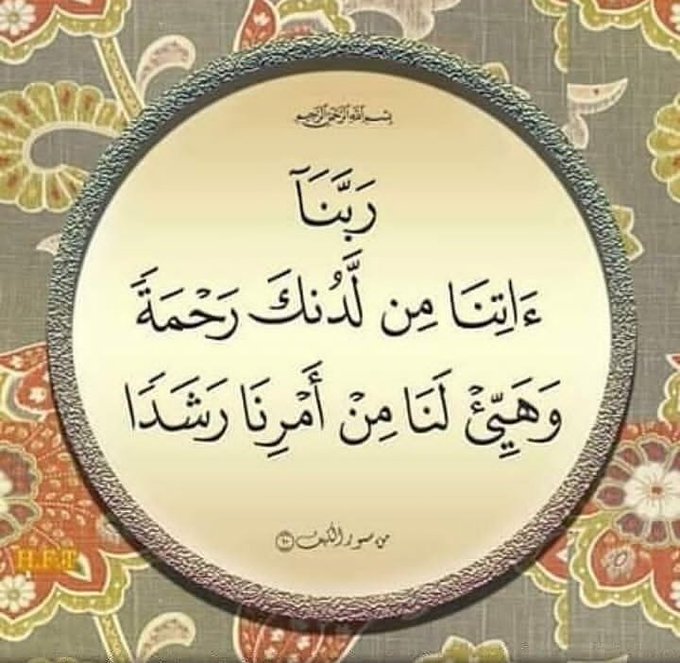 بِسْمِ اللَّهِ الرَّحْمَٰنِ الرَّحِيمِ
رَبَّنَآ
ءَاتِنَا مِن لَّدُنكَ رَحْمَةً
وَهَيِّئْ لَنَا مِنْ أَمْرِنَا رَشَدًا
من سورة الكهف ١٠
H.F.T